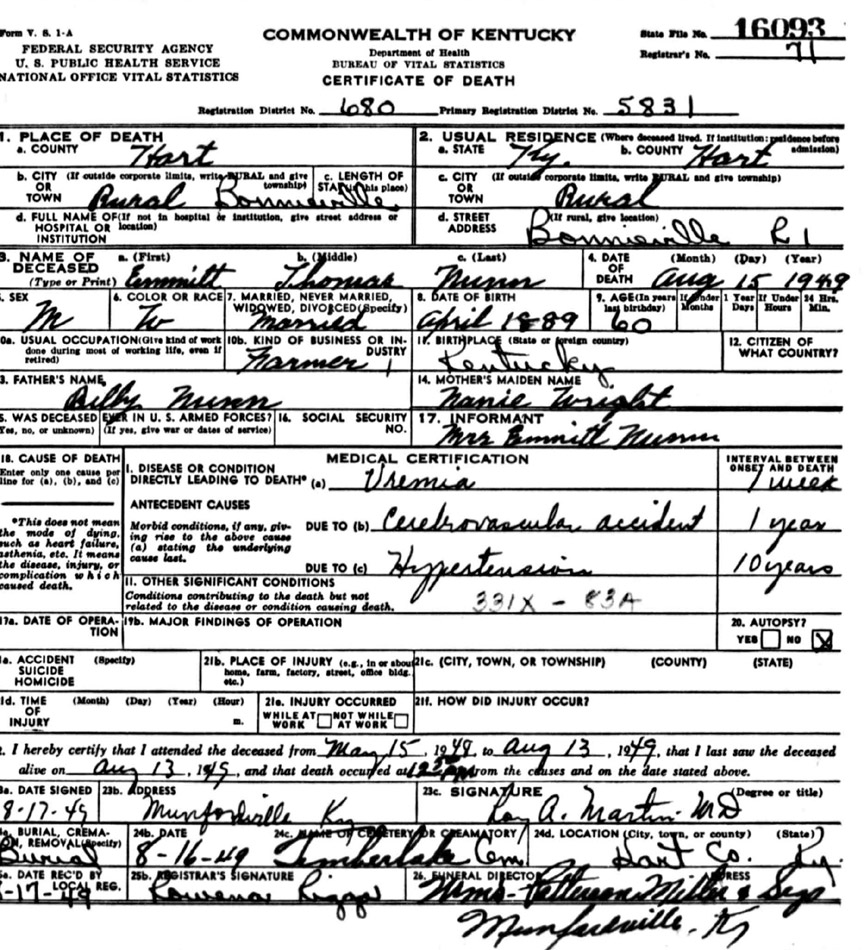 Form V. S. 1-A
FEDERAL SECURITY AGENCY
U. S. PUBLIC HEALTH SERVICE
NATIONAL OFFICE VITAL STATISTICS
COMMONWEALTH OF KENTUCKY
Department of Health
BUREAU OF VITAL STATISTICS
CERTIFICATE OF DEATH
State File No. 16093
Registrar's No. 71
Registration District No. 680 Primary Registration District No. 5831
1. PLACE OF DEATH
a. COUNTY Hart
b. CITY (If outside corporate limits, write RURAL and give township)
OR
TOWN Rural Bonnieville
c. LENGTH OF STAY (in this place)
d. FULL NAME OF (If not in hospital or institution, give street address or location)
HOSPITAL OR
INSTITUTION
2. USUAL RESIDENCE (Where deceased lived. If institution: residence before admission)
a. STATE Ky. b. COUNTY Hart
c. CITY (If outside corporate limits, write RURAL and give township)
OR
TOWN Rural
d. STREET (If rural, give location)
ADDRESS Bonnieville R 1
3. NAME OF DECEASED
(Type or Print)
a. (First) Emmitt b. (Middle) Thomas c. (Last) Nunn
4. DATE OF DEATH (Month) (Day) (Year) Aug 15 1949
5. SEX M
6. COLOR OR RACE W
7. MARRIED, NEVER MARRIED, WIDOWED, DIVORCED (Specify) Married
8. DATE OF BIRTH April 1889
9. AGE (In years last birthday) 60
If Under 1 Year Months Days
If Under 24 Hrs. Hours Min.
10a. USUAL OCCUPATION (Give kind of work done during most of working life, even if retired)
10b. KIND OF BUSINESS OR INDUSTRY Farmer
11. BIRTHPLACE (State or foreign country) Kentucky
12. CITIZEN OF WHAT COUNTRY?
3. FATHER'S NAME Billy Nunn
14. MOTHER'S MAIDEN NAME Nanie Wright
5. WAS DECEASED EVER IN U. S. ARMED FORCES?
Yes, no, or unknown) (If yes, give war or dates of service)
16. SOCIAL SECURITY NO.
17. INFORMANT Mrs Emmitt Nunn
18. CAUSE OF DEATH
Enter only one cause per line for (a), (b), and (c)
*This does not mean the mode of dying, such as heart failure, asthenia, etc. It means the disease, injury, or complication which caused death.
MEDICAL CERTIFICATION
INTERVAL BETWEEN ONSET AND DEATH
I. DISEASE OR CONDITION DIRECTLY LEADING TO DEATH* (a) Uremia 1 week
ANTECEDENT CAUSES
Morbid conditions, if any, giving rise to the above cause (a) stating the underlying cause last.
DUE TO (b) Cerebrovascular accident 1 year
DUE TO (c) Hypertension 10 years
II. OTHER SIGNIFICANT CONDITIONS
Conditions contributing to the death but not related to the disease or condition causing death.
331X - 83A
19a. DATE OF OPERATION
19b. MAJOR FINDINGS OF OPERATION
20. AUTOPSY?
YES NO X
1a. ACCIDENT (Specify)
SUICIDE
HOMICIDE
21b. PLACE OF INJURY (e.g., in or about home, farm, factory, street, office bldg. etc.)
21c. (CITY, TOWN, OR TOWNSHIP) (COUNTY) (STATE)
1d. TIME (Month) (Day) (Year) (Hour)
OF
INJURY m.
21e. INJURY OCCURRED
WHILE AT WORK NOT WHILE AT WORK
21f. HOW DID INJURY OCCUR?
I hereby certify that I attended the deceased from May 15, 1948, to Aug 13, 1949, that I last saw the deceased
alive on Aug 13, 1949, and that death occurred at m., from the causes and on the date stated above.
3a. DATE SIGNED 8-17-49
23b. ADDRESS Munfordville Ky
23c. SIGNATURE (Degree or title) Roy A. Martin MD
BURIAL, CREMATION, REMOVAL (Specify) Burial
24b. DATE 8-16-49
24c. NAME OF CEMETERY OR CREMATORY Timberlake Cem
24d. LOCATION (City, town, or county) (State) Hart Co. Ky
5a. DATE REC'D BY LOCAL REG. 8-17-49
25b. REGISTRAR'S SIGNATURE Rowena Riggs
26. FUNERAL DIRECTOR ADDRESS Patterson Miller &
Munfordville, Ky